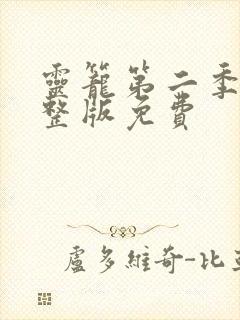 靈籠第二季
整版免費
盧多維奇-比